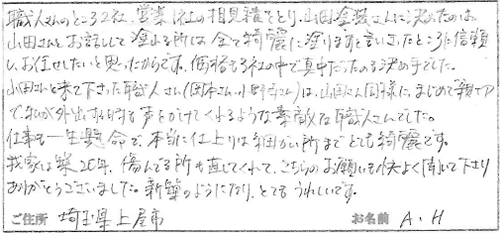 職人さんのところ2社、営業1社の相見積をとり、山田塗装さんに決めたのは、
山田さんとお話しして塗れる所は全て綺麗に塗りますと言いきったところに信頼
し、お任せしたいと思ったからです。価格も3社の中で真中だったのも決め手でした。
山田さんと来て下さった職人さん(岡本さん、小野寺さん)は、山田さん同様に、まじめで親切
で、私が外出する時も声をかけてくれるような素敵な職人さんでした。
仕事も一生懸命で、本当に仕上りは細かい所までとても綺麗です。
我家は築20年、傷んでる所も直してくれて、こちらのお願いも快よく聞いて下さり
ありがとうございました。新築のようになり、とてもうれしいです。
ご住所 埼玉県上尾市 お名前 A.H